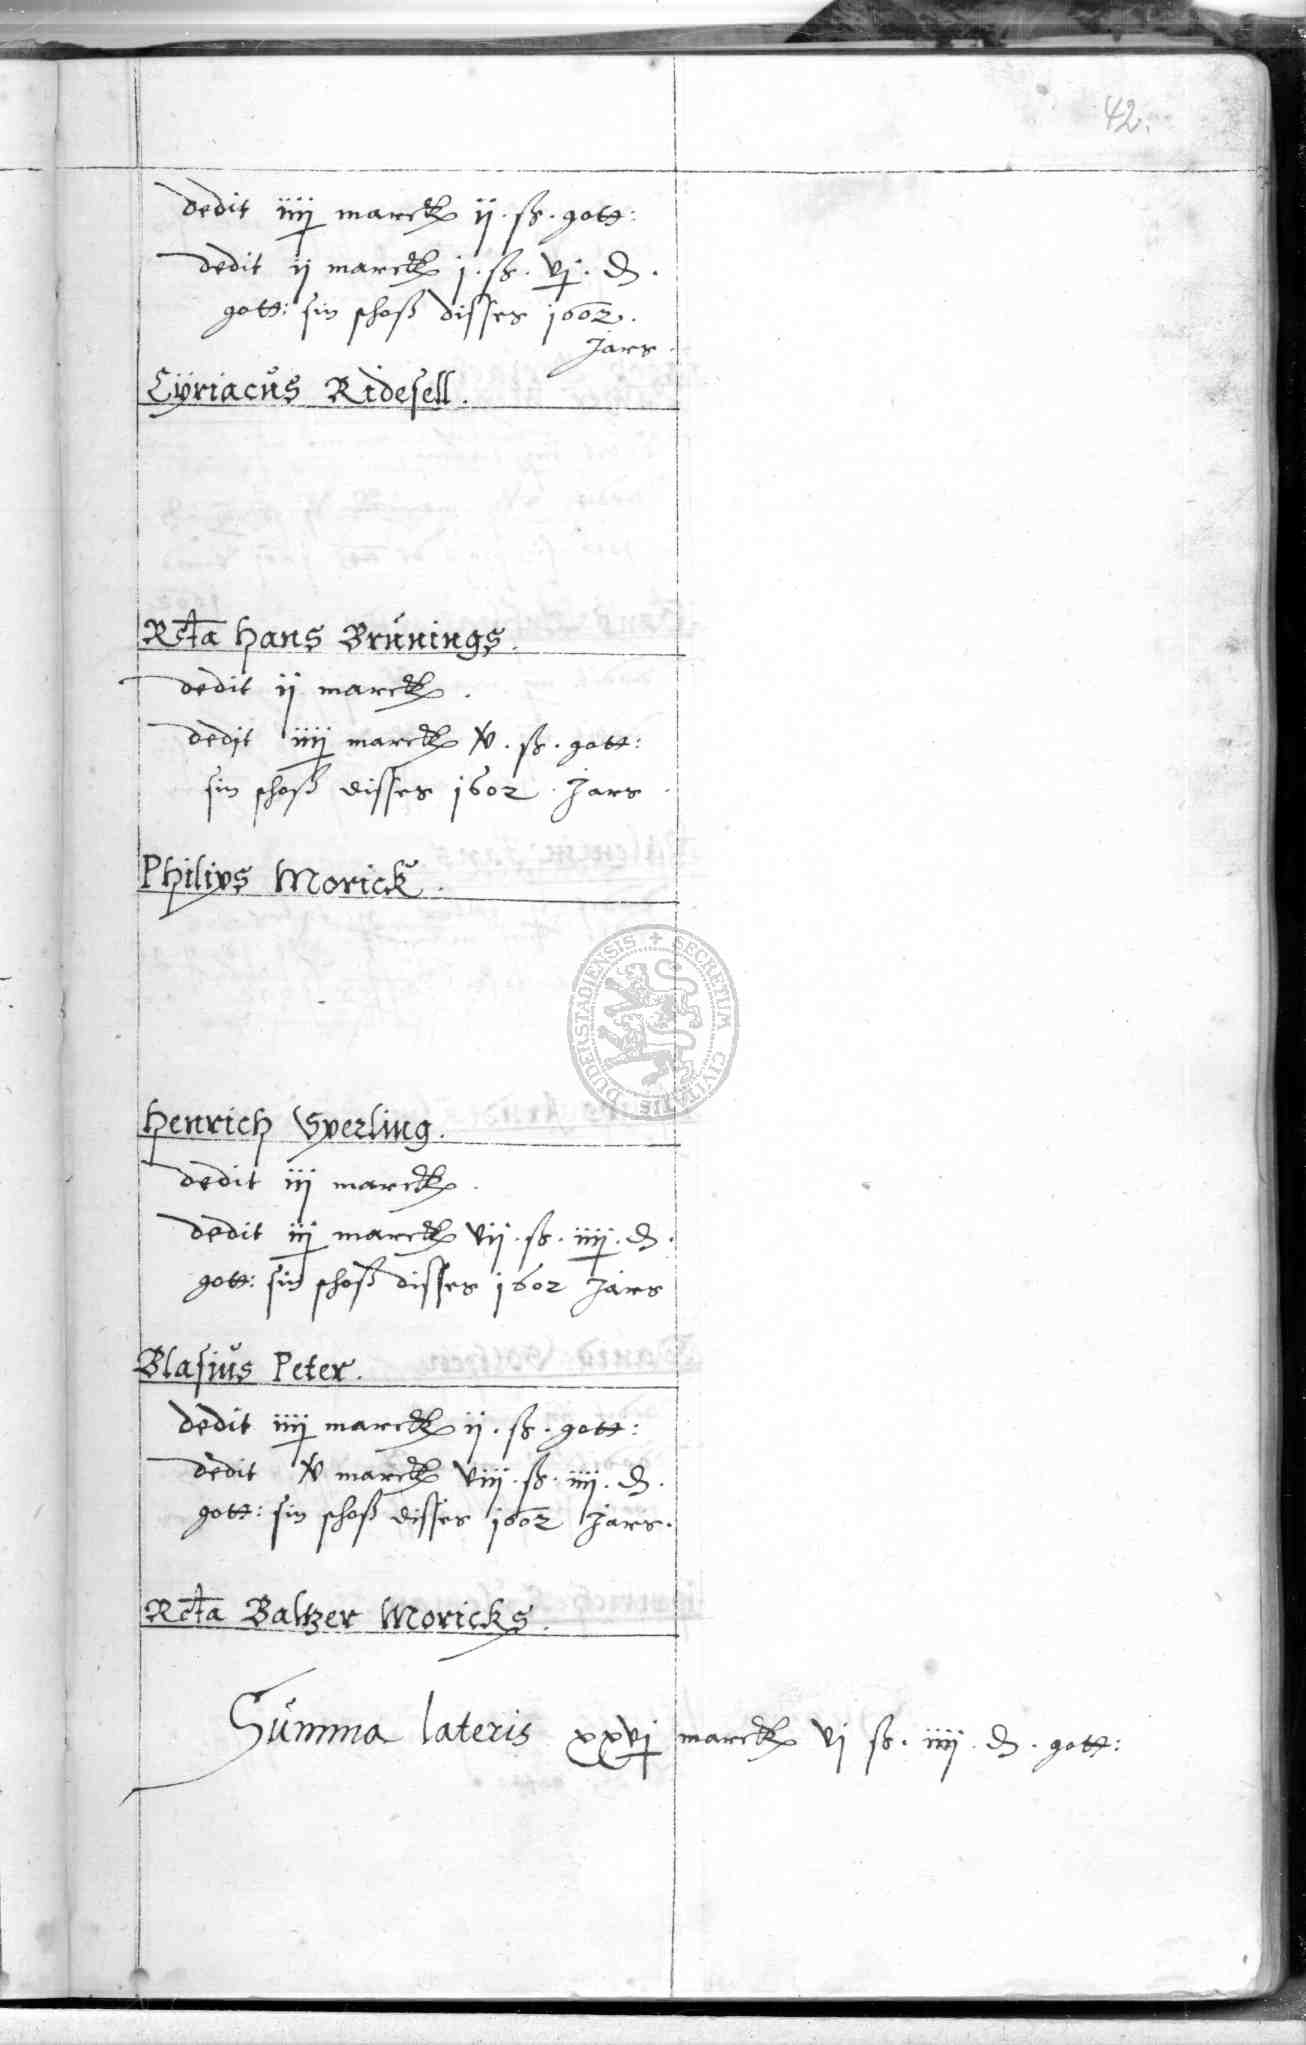 42.
dedit iiij marck ij. ß. gott:
dedit ij marck j. ß. vj. d.
gott: sin schoß disses 1602.
Jars.
Cÿriacus Ridesell.
Rcta Hans Brünings.
dedit ij marck.
dedit iiij marck v. ß. gott:
sin schoß disses 1602. Jars.
Philips Morick.
Henrich Sperling.
dedit iij marck.
dedit iij marck vij. ß. iiij. d.
gott: sin schoß disses 1602 Jars
Blasius Peter.
dedit iiij marck ij. ß. gott:
dedit v marck viij. ß. iiij. d.
gott: sin schoß disses 1602 Jars.
Rcta Baltzer Moricks.
Summa lateris xxvj marck vj ß. iiij. d. gott:
SECRETUM CIVITATIS DUDERSTADIENSIS